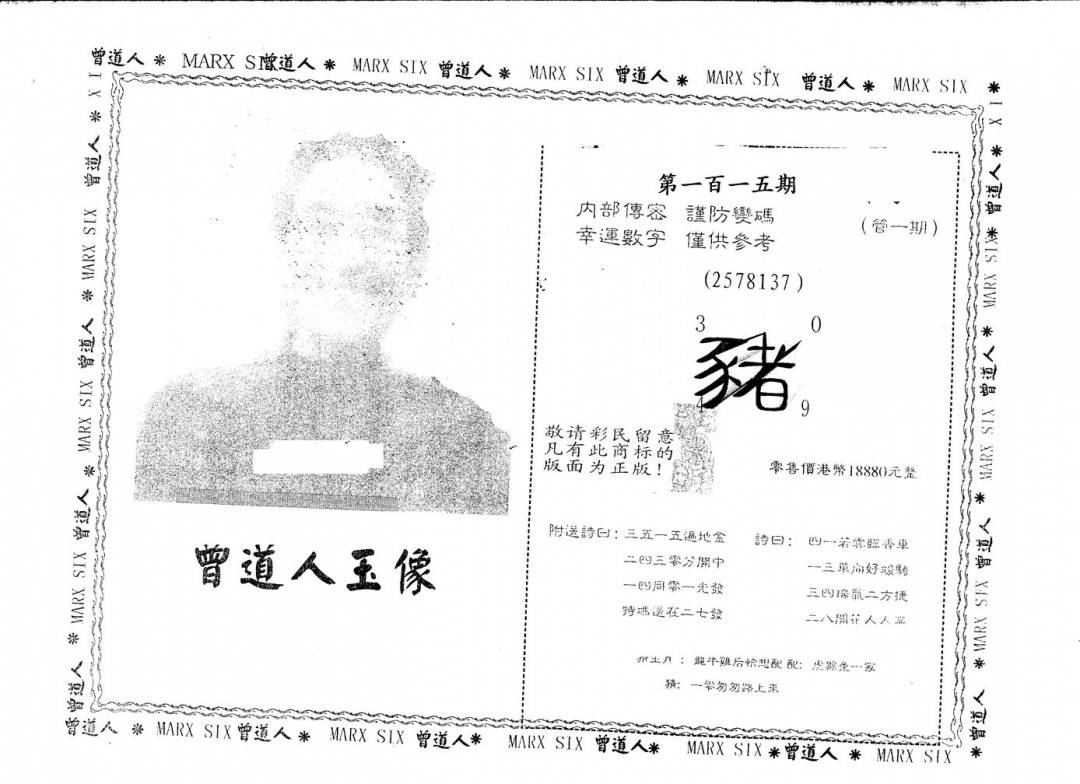 曾道人 * MARX SIX 曾道人 * MARX SIX 曾道人 * MARX SIX 曾道人 * MARX SIX 曾道人 * MARX SIX *
曾道人玉像
第一百一十五期
内部傳密 謹防變碼
幸運數字 僅供參考
(管一期)
(2578137)
3 0
豬
4 9
敬请彩民留意
凡有此商标的
版面为正版!
零售價港幣18880元整
附送詩曰:三五一五遍地金
二四三零分開中
一四同零一光發
特碼送在二七發
詩曰: 四一若雲臨香車
一三單向好駿騎
三四瑞氣二方捷
二八開花人人
龍牛雞后恰想配 配: 虎猴兔一家
猜: 一零匆匆路上来
曾道人 * MARX SIX 曾道人 * MARX SIX 曾道人* MARX SIX 曾道人* MARX SIX *曾道人 * MARX SIX *
曾道人 * MARX SIX 曾道人 * MARX SIX * 曾道人 * MARX SIX * 曾道人 * IX
IX * 曾道人 * MARX SIX * 曾道人 * MARX SIX * 曾道人 * MARX SIX * 曾道人 *